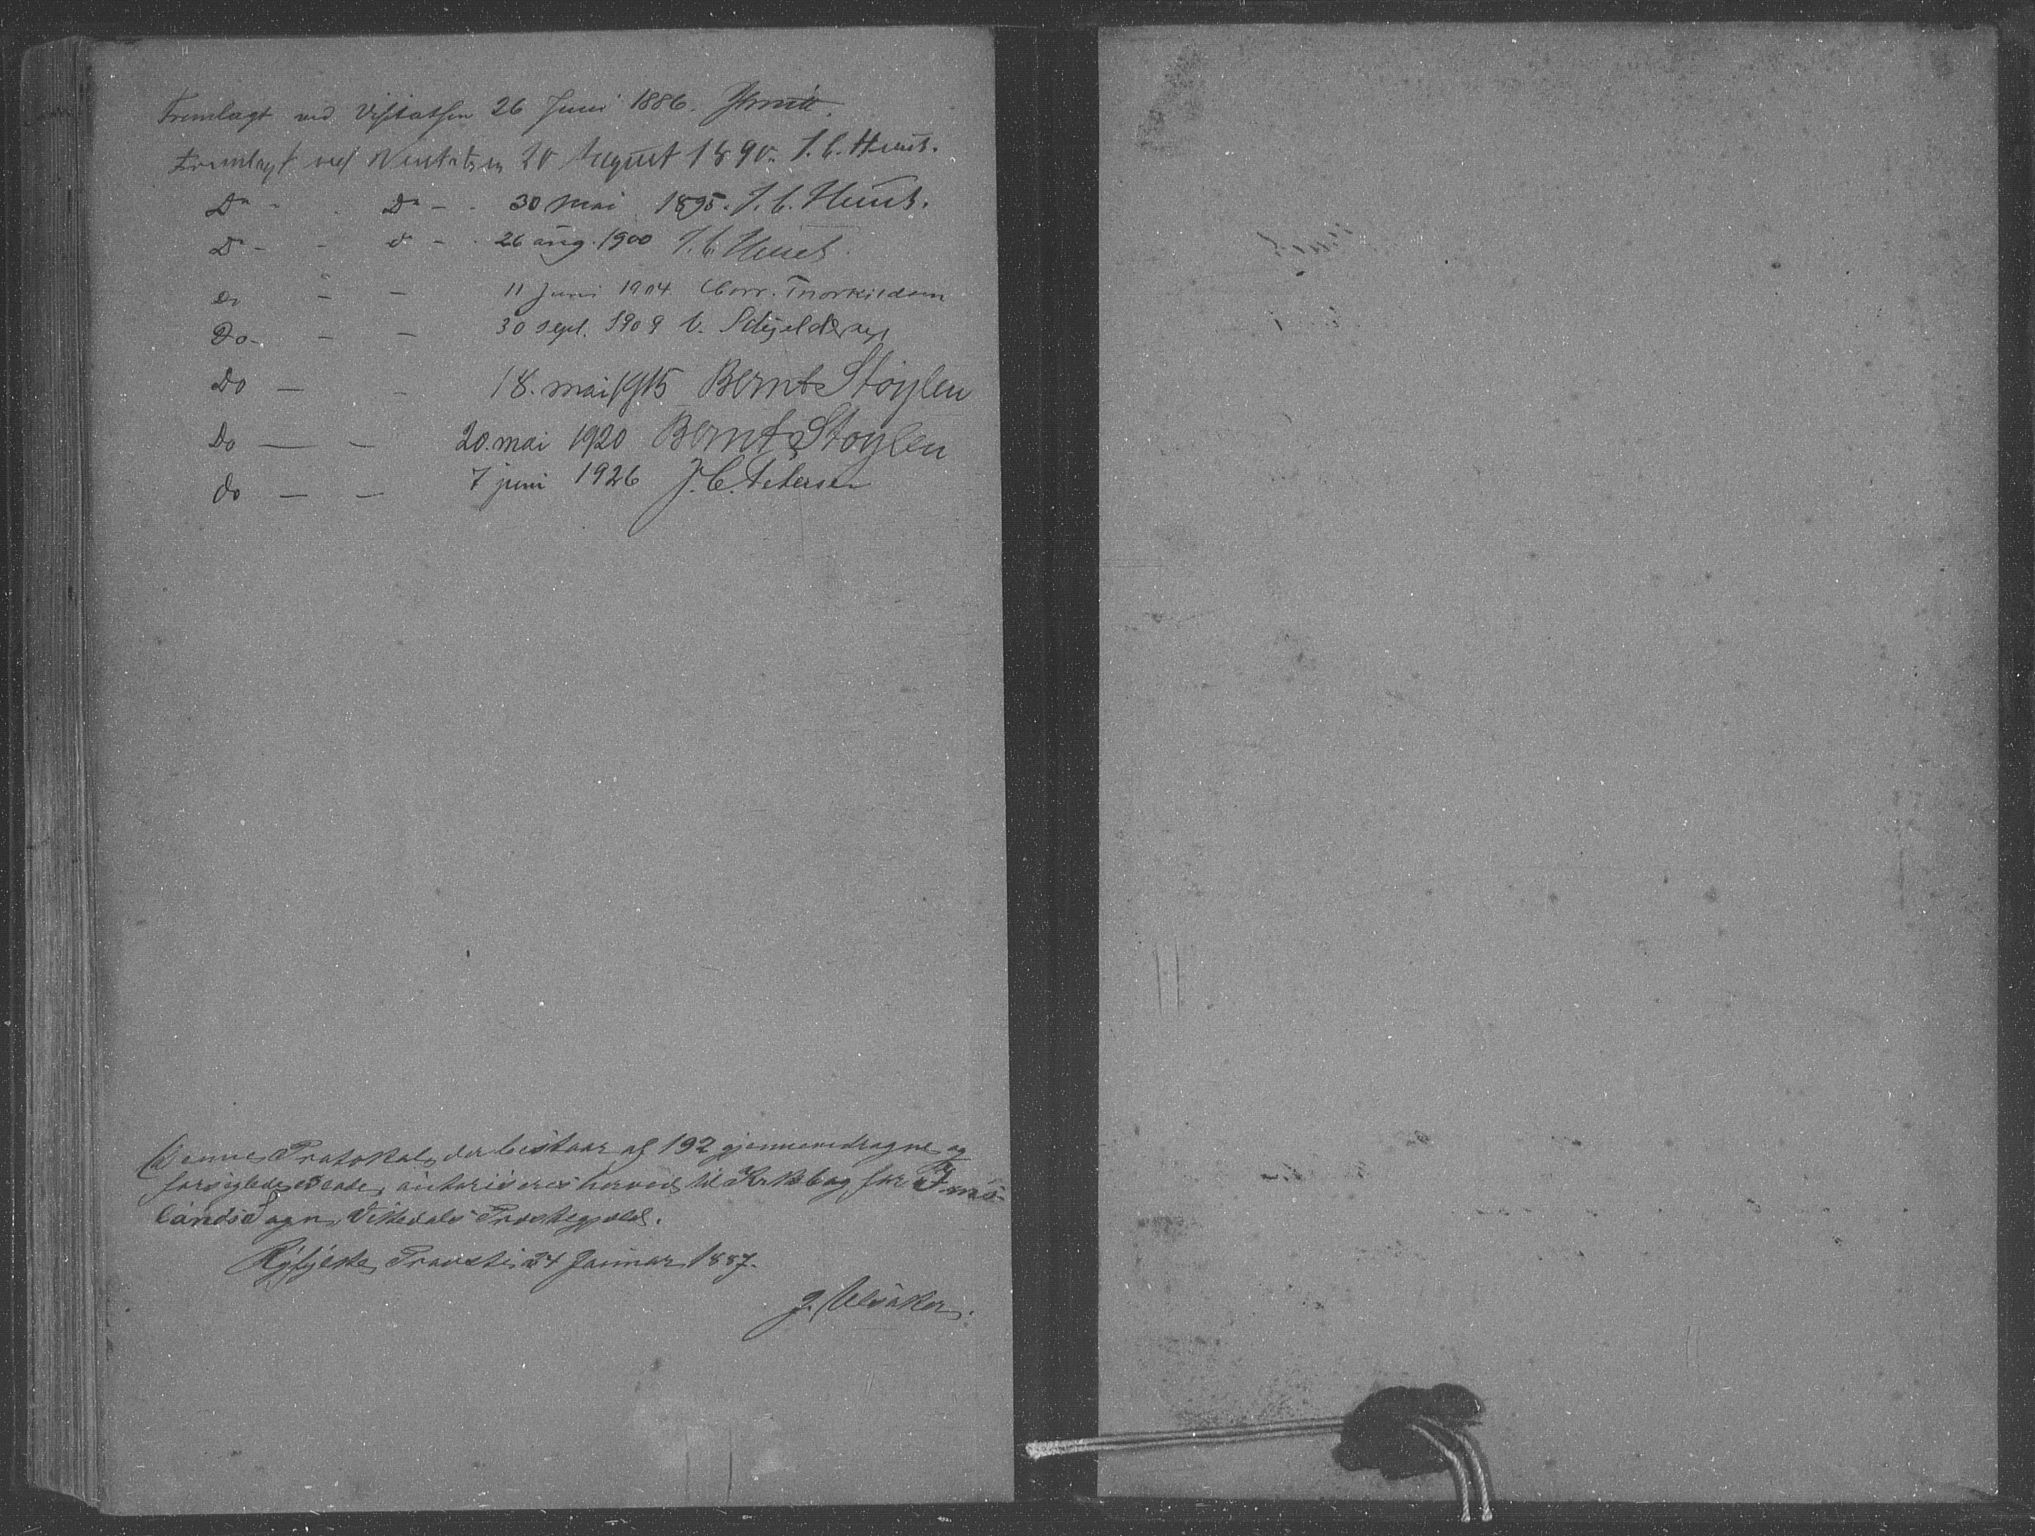 Fremlagt ved Visitatsen 26 Juni 1886.
Fremlagt ved Visitatsen 20 August 1890. J. C. Heuch.
Do - - Do - - 30 mai 1895. J. C. Heuch.
Do - - do - - 26 aug. 1900 J. C. Heuch.
Do - - 11 Juni 1904 Chorr. Thorkildsen
Do - - - 30 sept. 1909 V. Schjelderup
Do - - 18. mai 1915 Bernt Støylen
Do - - 20. mai 1920 Bernt Støylen
do - - 7 juni 1926 J. C. Petersen
Denne Protokol, der bestaar af 192 gjennemdragne og
forseglede Blade, autoriseres herved til Kirkebog for Ims-
lands Sogn, Vikedals Præstegjæld.
Ryfylke Provsti 24 Januar 1887.